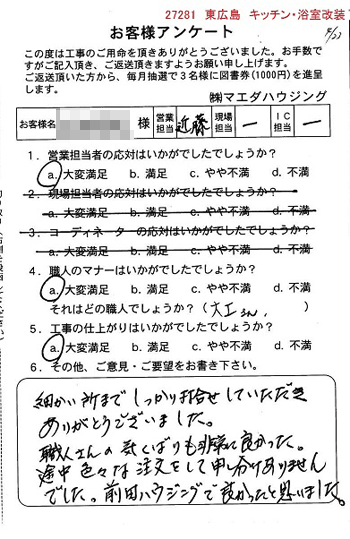 27281 東広島 キッチン・浴室改装
お客様アンケート
この度は工事のご用命を頂きありがとうございました。お手数で
すがご記入頂き、ご返送頂きますようお願い申し上げます。
ご返送頂いた方から、毎月抽選で3名様に図書券(1000円)を進呈
します。
㈱マエダハウジング
お客様名 様 営業担当 近藤 現場担当 ー IC担当 ー
1.営業担当者の応対はいかがでしたでしょうか?
a.大変満足 b.満足 c.やや不満 d.不満
2.現場担当者の応対はいかがでしたでしょうか?
a.大変満足 b.満足 c.やや不満 d.不満
3.コーディネーターの応対はいかがでしたでしょうか?
a.大変満足 b.満足 c.やや不満 d.不満
4.職人のマナーはいかがでしたでしょうか?
a.大変満足 b.満足 c.やや不満 d.不満
それはどの職人でしょうか?(大工さん)
5.工事の仕上がりはいかがでしたでしょうか?
a.大変満足 b.満足 c.やや不満 d.不満
6.その他、ご意見・ご要望をお書き下さい。
細かい所までしっかり打合せしていただき
ありがとうございました。
職人さんの気くばりも非常に良かった。
途中色々な注文をして申し分けありません
でした。前田ハウジングで良かったと思いました。